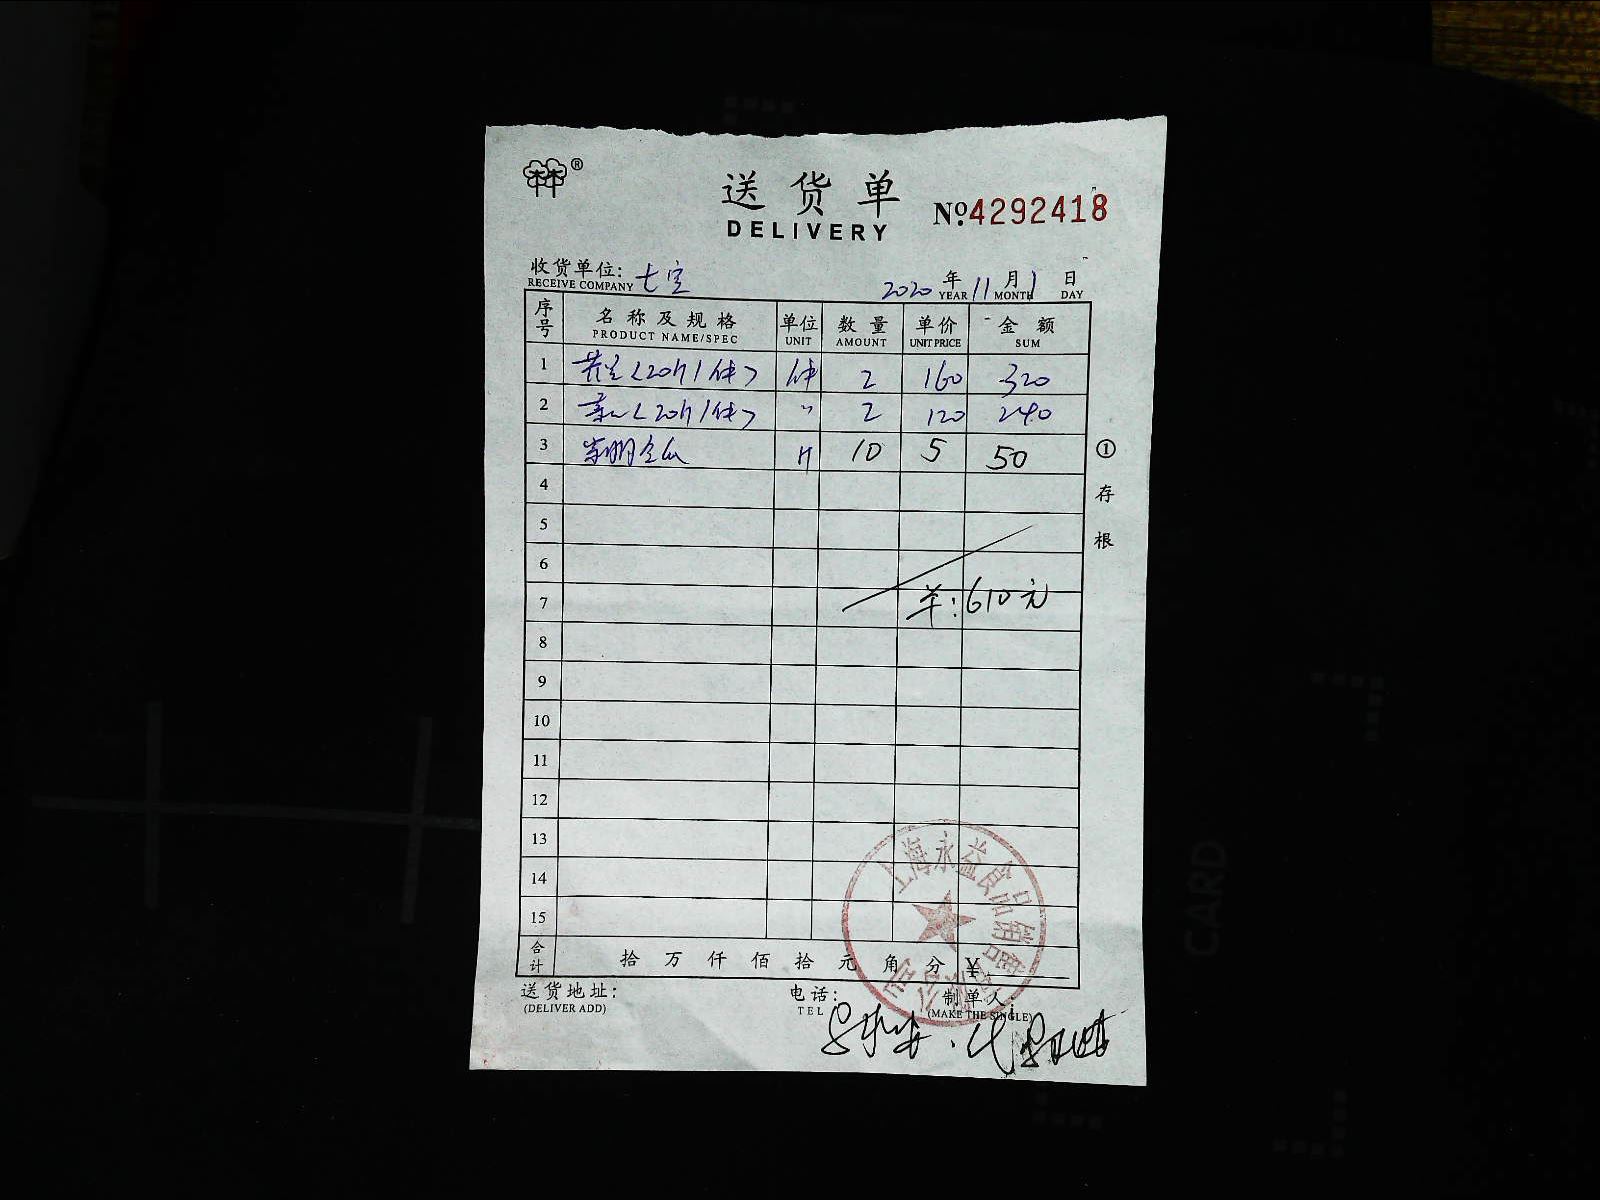 林®
送货单
DELIVERY
№4292418
收货单位: 七宝
RECEIVE COMPANY
2020 年 11 月 1 日
YEAR MONTH DAY
序号 名称及规格 单位 数量 单价 金额
PRODUCT NAME/SPEC UNIT AMOUNT UNIT PRICE SUM
1 <20h/件> 件 2 160 320
2 <20h/件> 〃 2 120 240
3 崇明金瓜 10 5 50
4
5
6
7 610元
8
9
10
11
12
13
14
15
合计 拾 万 仟 佰 拾 元 角 分 ¥
① 存根
送货地址: 电话: 制单人:
(DELIVER ADD) TEL (MAKE THE SINGLE)
上海永益食品销售有限公司